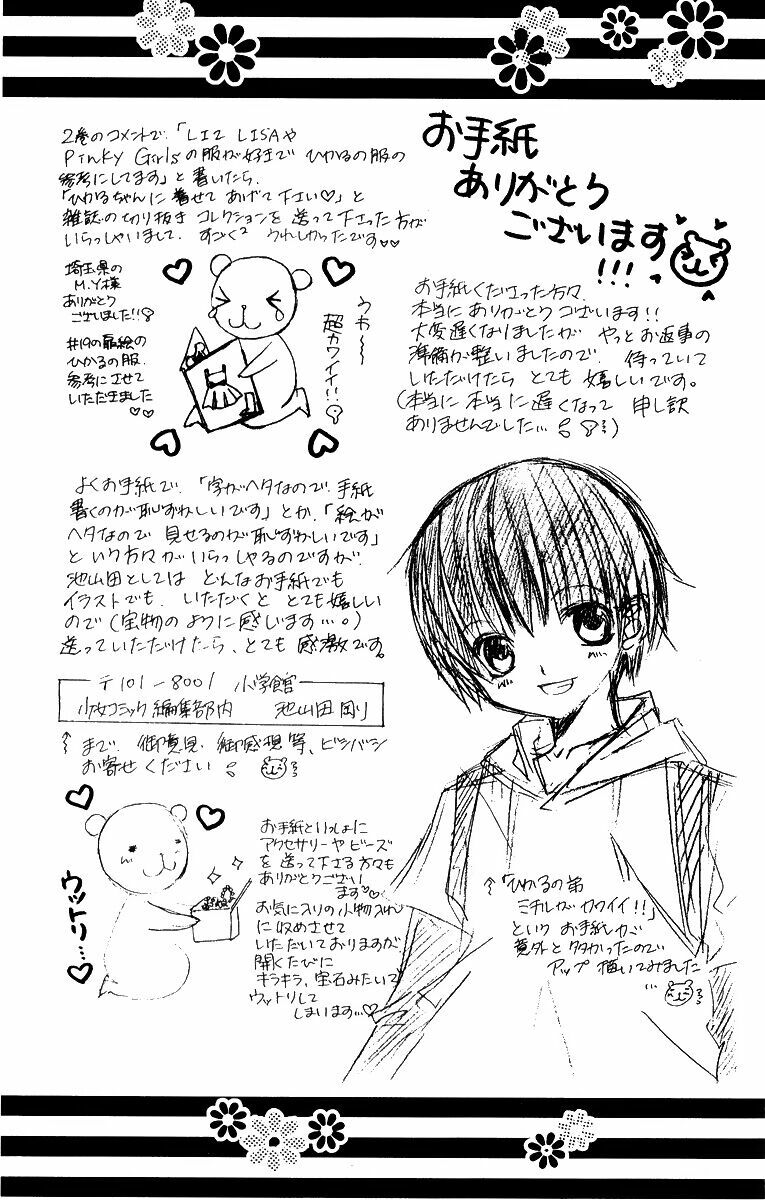 お手紙
ありがとう
ございます
!!!
お手紙くださった方々、
本当にありがとうございます!!
大変遅くなりましたが やっとお返事の
準備が整いましたので、待っていて
いただけたら とても嬉しいです。
(本当に 本当に遅くなって 申し訳
ありませんでした…)
2巻のコメントで、「LIZ LISAや
Pinky Girlsの服が好きで ひかるの服の
参考にしてます」と書いたら、
「ひかるちゃんに 着せて あげて下さい♡」と
雑誌の切り抜き コレクションを 送って下さった方が
いらっしゃいまして、すごく² うれしかったです♡♡
埼玉県の
M.Y様
ありがとう
ございました!!
#19の扉絵の
ひかるの服、
参考にさせて
いただきました
♡♡
うわ〜〜
超カワイイ!!
よくお手紙で、「字がヘタなので、手紙
書くのが恥ずかしいです」とか、「絵が
ヘタなので 見せるのが恥ずかしいです」
という方々がいらっしゃるのですが、
池山田としては どんなお手紙でも
イラストでも、いただくと とても嬉しい
ので(宝物のように感じます…。)
送っていただけたら、とても 感激です。
〒101-8001 小学館
少女コミック編集部内 池山田 剛
↑まで、御意見、御感想 等、ビシバシ
お寄せください
お手紙といっしょに
アクセサリーやビーズ
を 送って下さる方々も
ありがとうござい
ます♡♡
お気に入りの小物入れ
に 収めさせて
いただいておりますが、
開くたびに
キラキラ、宝石みたいで
ウットリして
しまいます…♡
ウットリ…♡
↑「ひかるの弟
ミチルが カワイイ!!」
という お手紙が
意外と多かったので
アップ 描いてみました
…